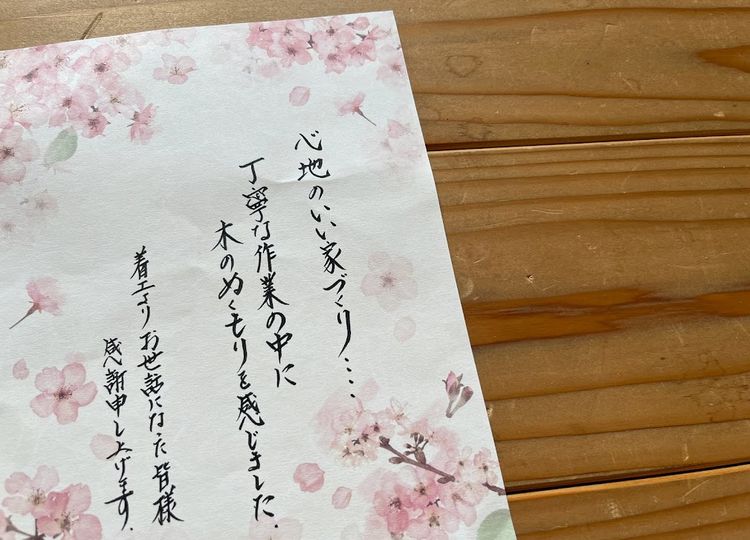 心地のいい家づくり....
丁寧な作業の中に
木のぬくもりを感じました.
着工よりお世話になった皆様
感謝申し上げます.